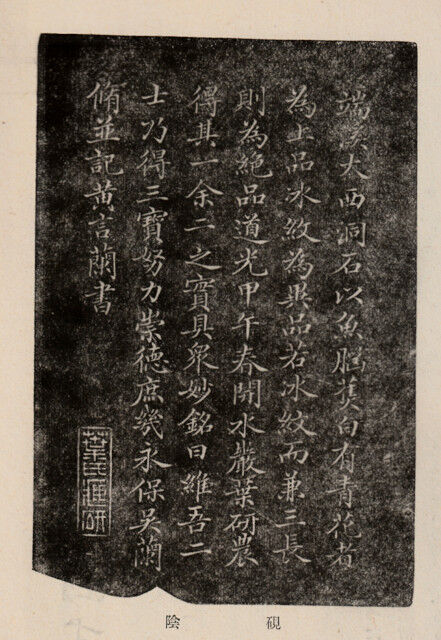 端溪大西洞石以魚腦蕉白有青花者
為上品冰紋為異品若冰紋而兼三長
則為絕品道光甲午春開水巖葉研農
得其一余二之寶具眾妙銘曰維吾二
士乃得三寶努力崇德庶幾永保吳蘭
脩並記黃言蘭書
葉氏研
硯陰